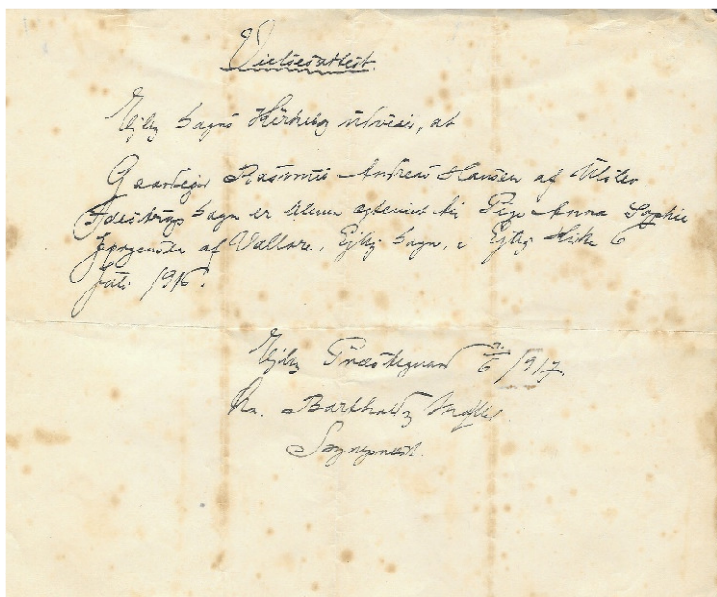 Vielsesattest.
Ejby Sogns Kirkebog udviser, at
Gaardejer Rasmus Andreas Hansen af
Sogn er bleven ægteviet til Pige Anna Sophie
Jørgensen af Vallore, Ejby Sogn, i Ejby Kirke 6
Juli 1916.
Ejby Præstegaard 6/1917
Barthold
Sognepræst.